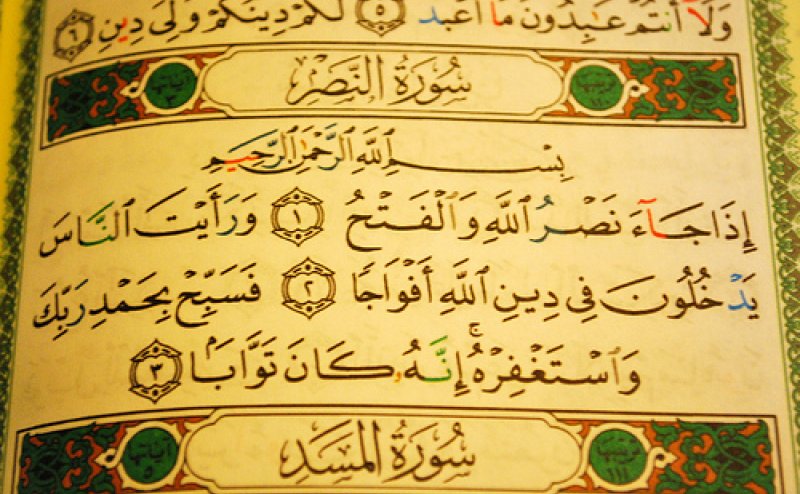 وَلَآ أَنتُمْ عَٰبِدُونَ مَآ أَعْبُدُ ٥ لَكُمْ دِينُكُمْ وَلِىَ دِينِ ٦
سُورَةُ النَّصْرِ
بِسْمِ ٱللَّهِ ٱلرَّحْمَٰنِ ٱلرَّحِيمِ
إِذَا جَآءَ نَصْرُ ٱللَّهِ وَٱلْفَتْحُ ١ وَرَأَيْتَ ٱلنَّاسَ
يَدْخُلُونَ فِى دِينِ ٱللَّهِ أَفْوَاجًا ٢ فَسَبِّحْ بِحَمْدِ رَبِّكَ
وَٱسْتَغْفِرْهُ ۚ إِنَّهُۥ كَانَ تَوَّابًۢا ٣
ترتيبها ١١١ سُورَةُ المَسَدِ آياتها ٥